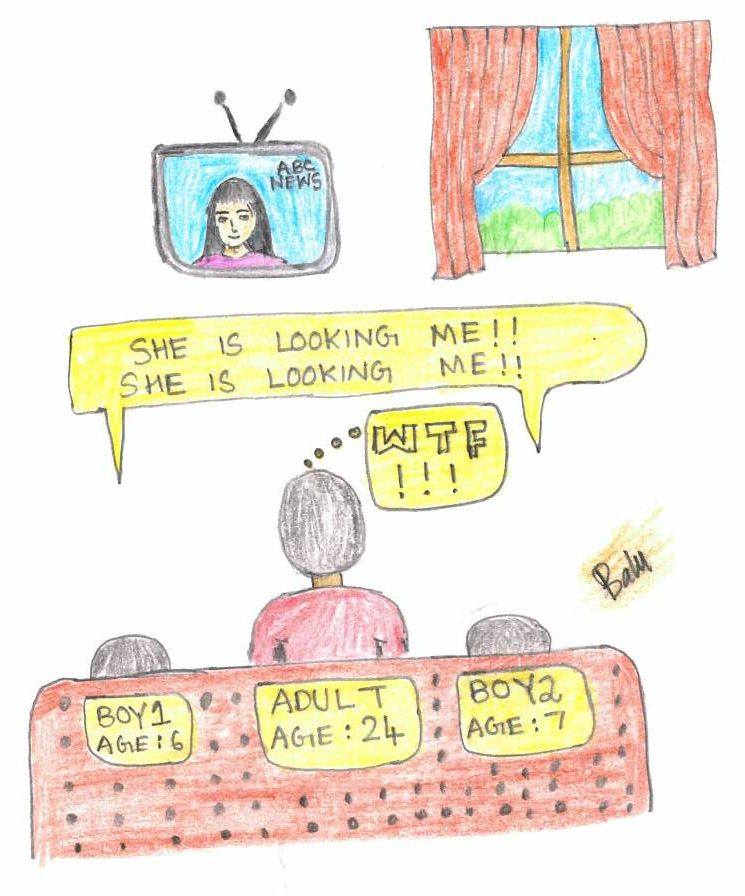 ABC
NEWS
SHE IS LOOKING ME!!
SHE IS LOOKING ME!!
WTF
!!!
Balu
BOY1
AGE:6
ADULT
AGE:24
BOY2
AGE:7